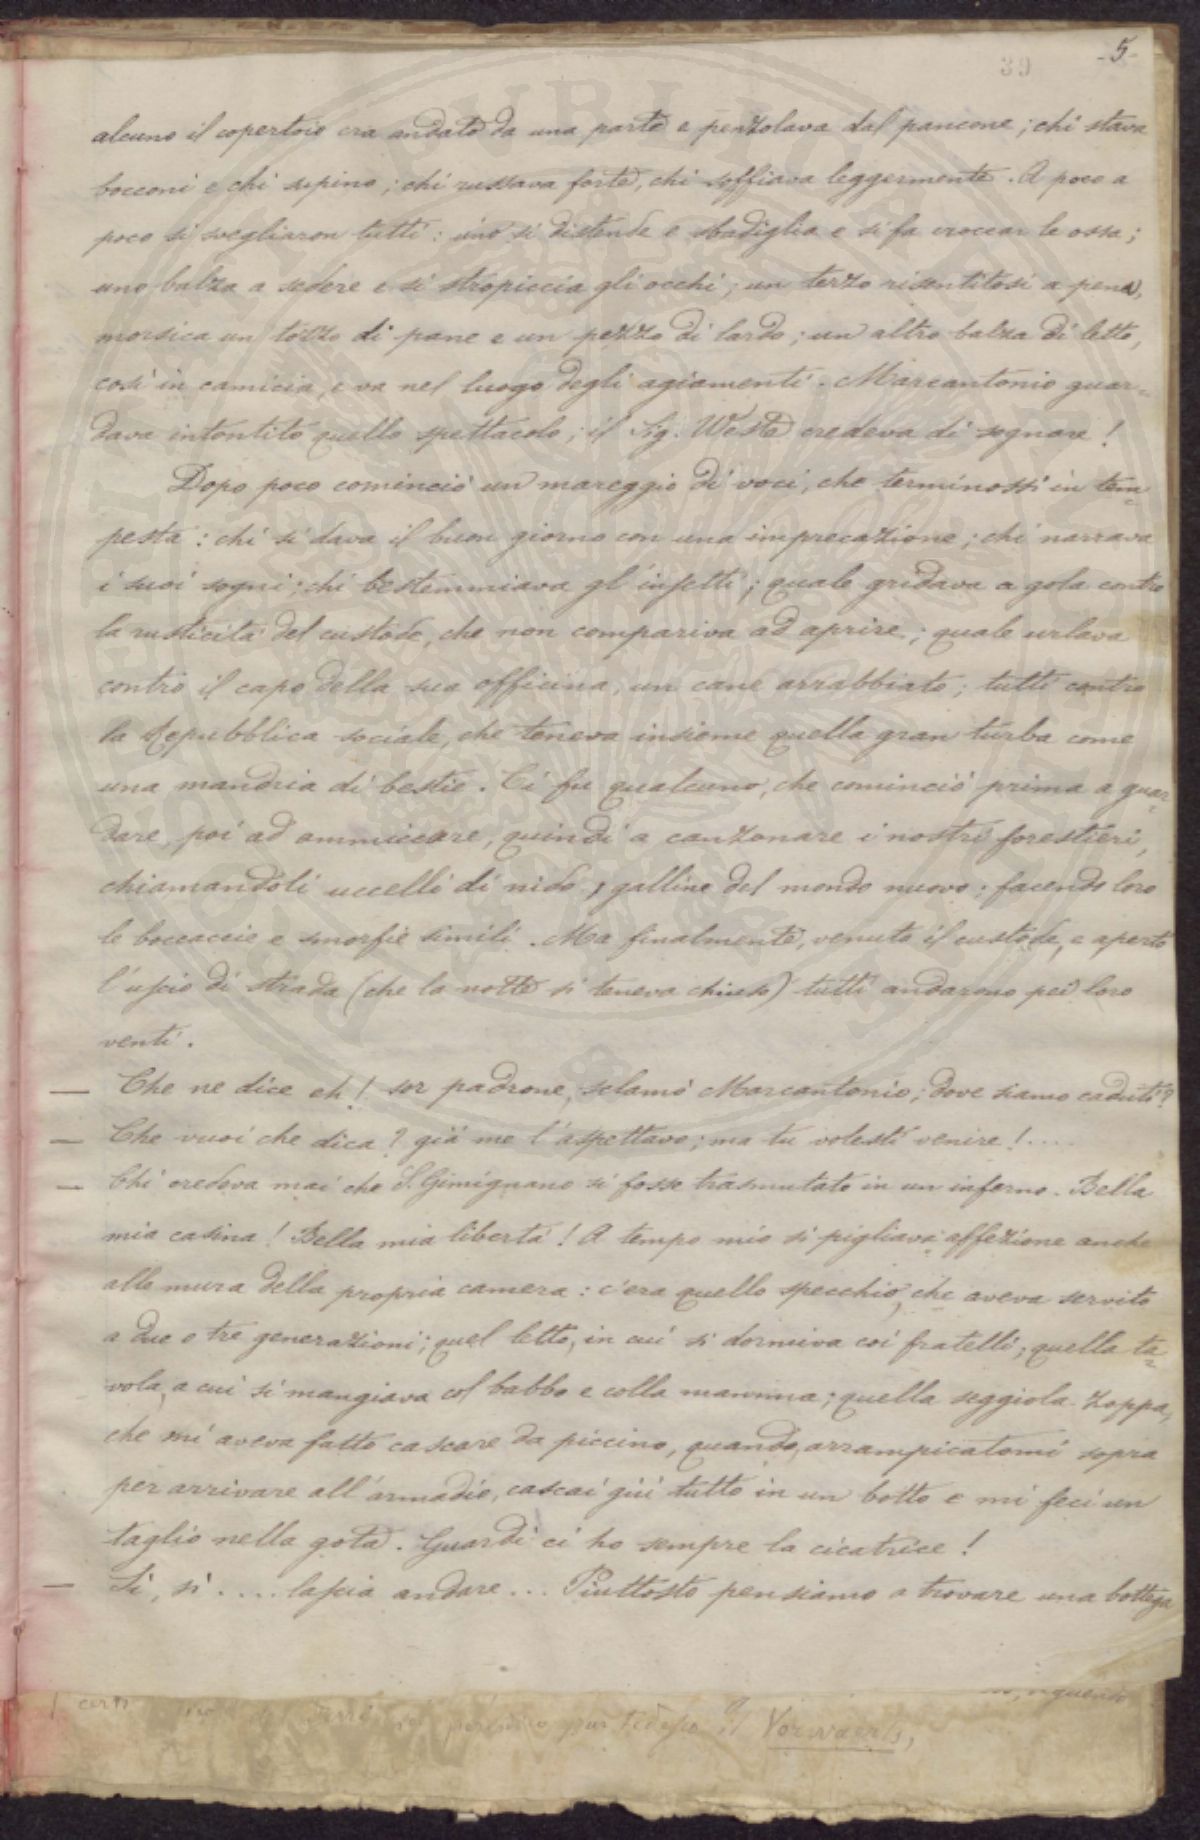 39 -5-
alcuno il copertoio era andato da una parte e penzolava dal pancone; chi stava
bocconi e chi supino; chi russava forte, chi soffiava leggermente. A poco a
poco si svegliaron tutti: uno si distende e sbadiglia e si fa croccar le ossa;
uno balza a sedere e si stropiccia gli occhi; un terzo risentitosi a pena,
morsica un tozzo di pane e un pezzo di lardo; un altro balza di letto,
così in camicia, e va nel luogo degli agiamenti. Marcantonio guar-
dava intontito quello spettacolo; il Sig. West credeva di sognare!
Dopo poco cominciò un mareggio di voci, che terminossi in tem-
pesta: chi si dava il buon giorno con una imprecazione; chi narrava
i suoi sogni; chi bestemmiava gl'insetti; quale gridava a gola contro
la rusticità del custode, che non compariva ad aprire; quale urlava
contro il capo della sua officina, un cane arrabbiato; tutti contro
la Repubblica sociale, che teneva insieme quella gran turba come
una mandria di bestie. Ci fu qualcuno, che cominciò prima a guar-
dare, poi ad ammiccare, quindi a canzonare i nostri forestieri,
chiamandoli uccelli di nido, galline del mondo nuovo; facendo loro
le boccaccie e smorfie simili. Ma finalmente, venuto il custode, e aperto
l'uscio di strada (che la notte si teneva chiuso) tutti andarono pei loro
venti.
— Che ne dice eh! sor padrone, sclamò Marcantonio; dove siamo caduti?
— Che vuoi che dica? già me l'aspettavo; ma tu volesti venire!....
— Chi credeva mai che S. Gimignano si fosse trasmutato in un inferno. Bella
mia casina! Bella mia libertà! A tempo mio si pigliava affezione anche
alle mura della propria camera: c'era quello specchio, che aveva servito
a due o tre generazioni; quel letto, in cui si dormiva coi fratelli; quella ta-
vola, a cui si mangiava col babbo e colla mamma; quella seggiola zoppa,
che mi aveva fatto cascare da piccino, quando, arrampicatomi sopra
per arrivare all'armadio, cascai giù tutto in un botto e mi feci un
taglio nella gota. Guardi ci ho sempre la cicatrice!
— Sì, sì.... lascia andare... Piuttosto pensiamo a trovare una bottega
seguendo
il Vorwaerts,